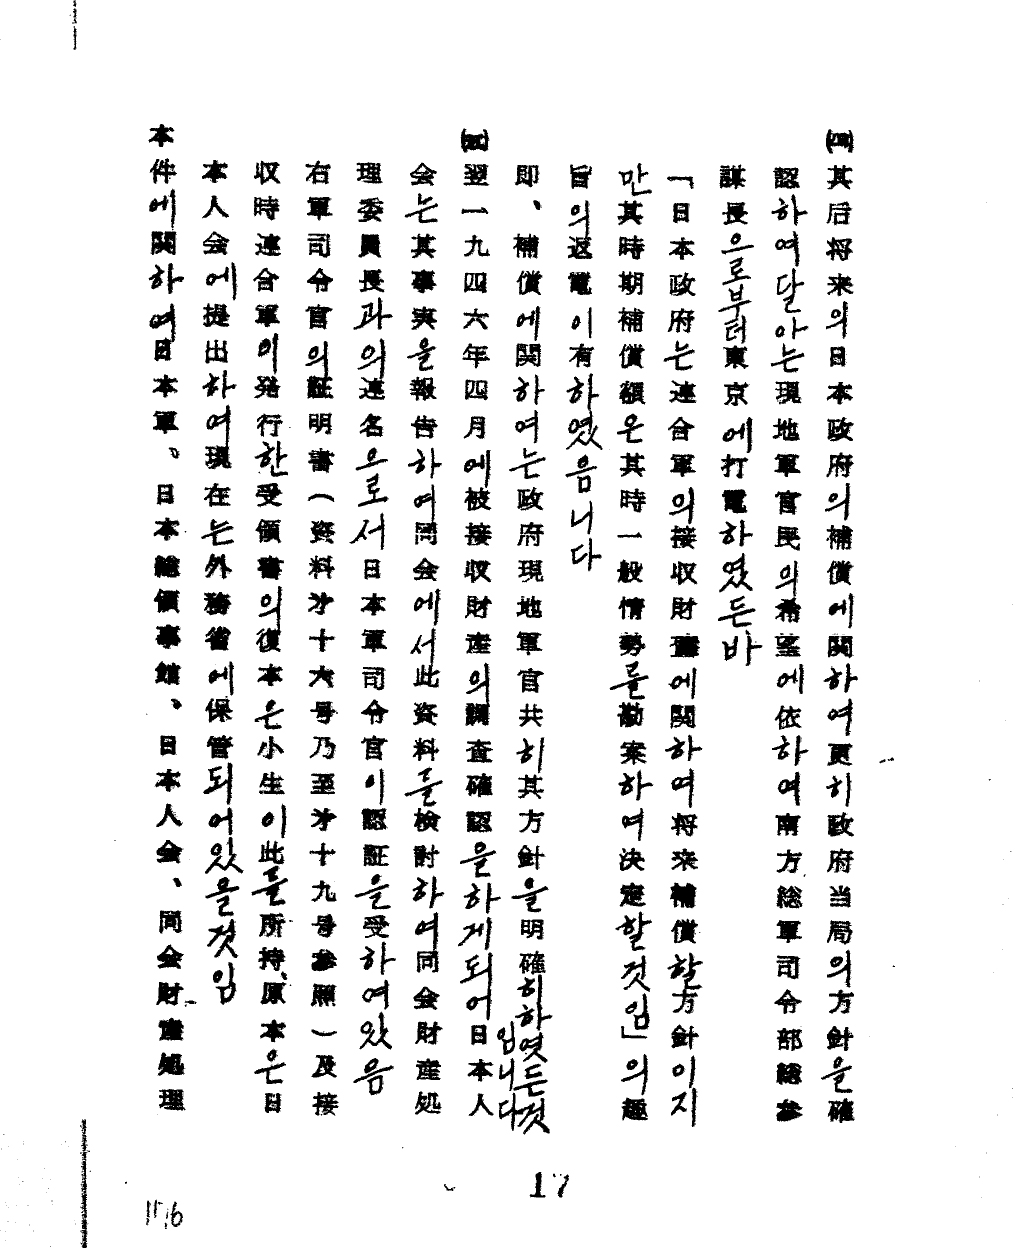 ㈣其后将来의日本政府의補償에関하여更히政府当局의方針을確
認하여달아는現地軍官民의希望에依하여南方総軍司令部総参
謀長으로부터東京에打電하였든바
「日本政府는連合軍의接収財産에関하여将来補償할方針이지
만其時期補償額은其時一般情勢를勘案하여決定할것임」의趣
旨의返電이有하였음니다
即、補償에関하여는政府現地軍官共히其方針을明確히하엿든것
임니다
㈤翌一九四六年四月에被接収財産의調査確認을하게되어日本人
会는其事実을報告하여同会에서此資料를検討하여同会財産処
理委員長과의連名으로서日本軍司令官이認証을受하여있음
右軍司令官의証明書(資料才十六号乃至才十九号参照)及接
収時連合軍이発行한受領書의復本은小生이此를所持、原本은日
本人会에提出하여現在는外務省에保管되어있을것임
本件에関하여日本軍、日本総領事館、日本人会、同会財産処理
17
1176